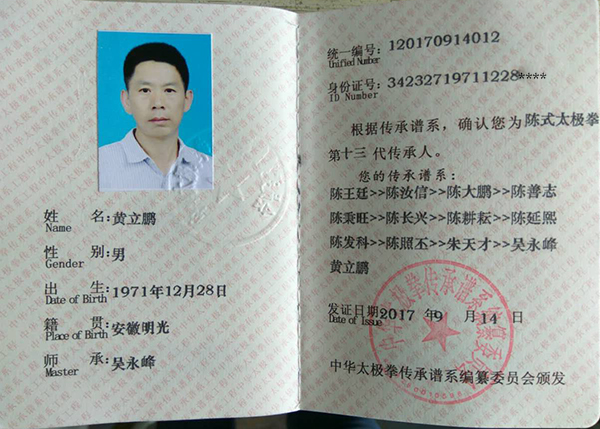 姓 名:黄立鹏
Name
性 别:男
Gender
出 生:1971年12月28日
Date of Birth
籍 贯:安徽明光
Place of Birth
师 承:吴永峰
Master
统一编号:120170914012
Unified Number
身份证号:34232719711228****
ID Number
根据传承谱系，确认您为陈式太极拳
第十三 代传承人。
您的传承谱系:
陈王廷>>陈汝信>>陈大鹏>>陈善志
陈秉旺>>陈长兴>>陈耕耘>>陈延熙
陈发科>>陈照丕>>朱天才>>吴永峰
黄立鹏
发证日期:2017 年9 月14 日
Date of Issue
中华太极拳传承谱系编纂委员会颁发
中华太极拳传承谱系编纂委员会